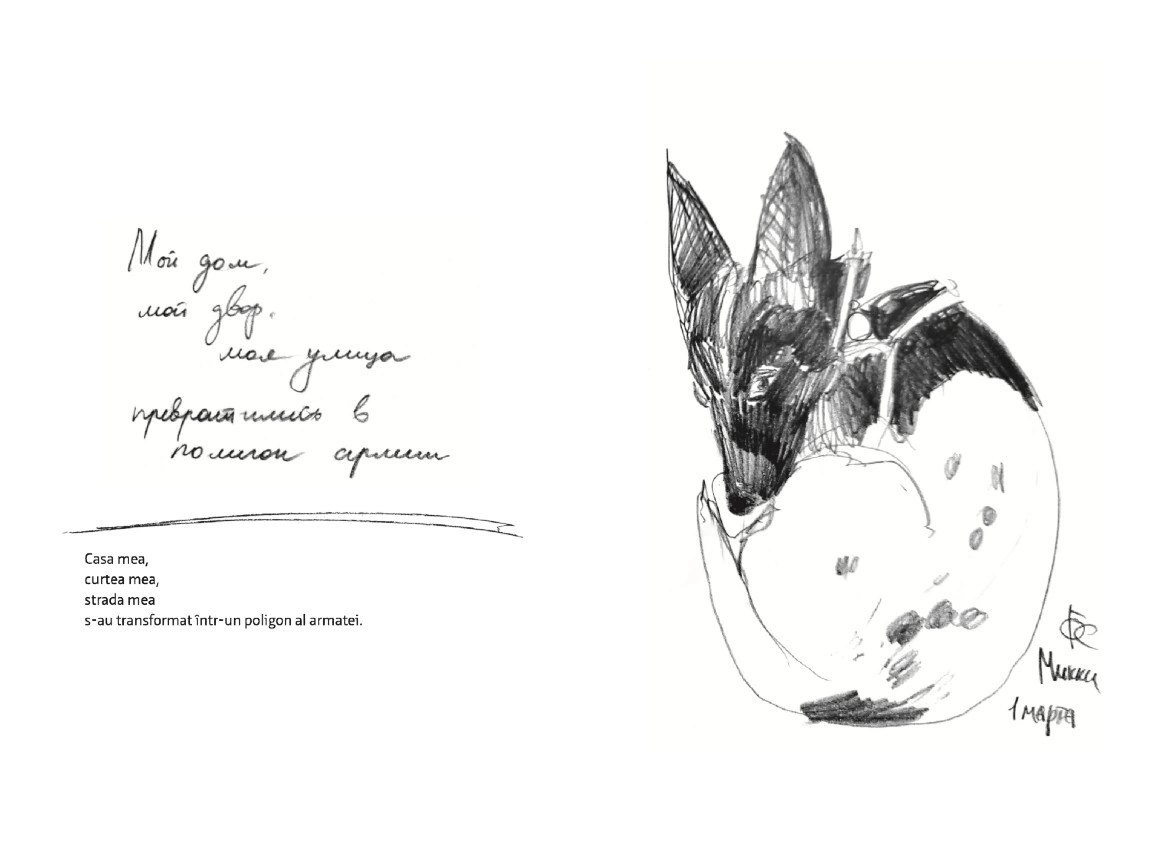 Мой дом,
мой двор,
моя улица
превратились в
полигон армии
Casa mea,
curtea mea,
strada mea
s-au transformat într-un poligon al armatei.
Микки
1 марта